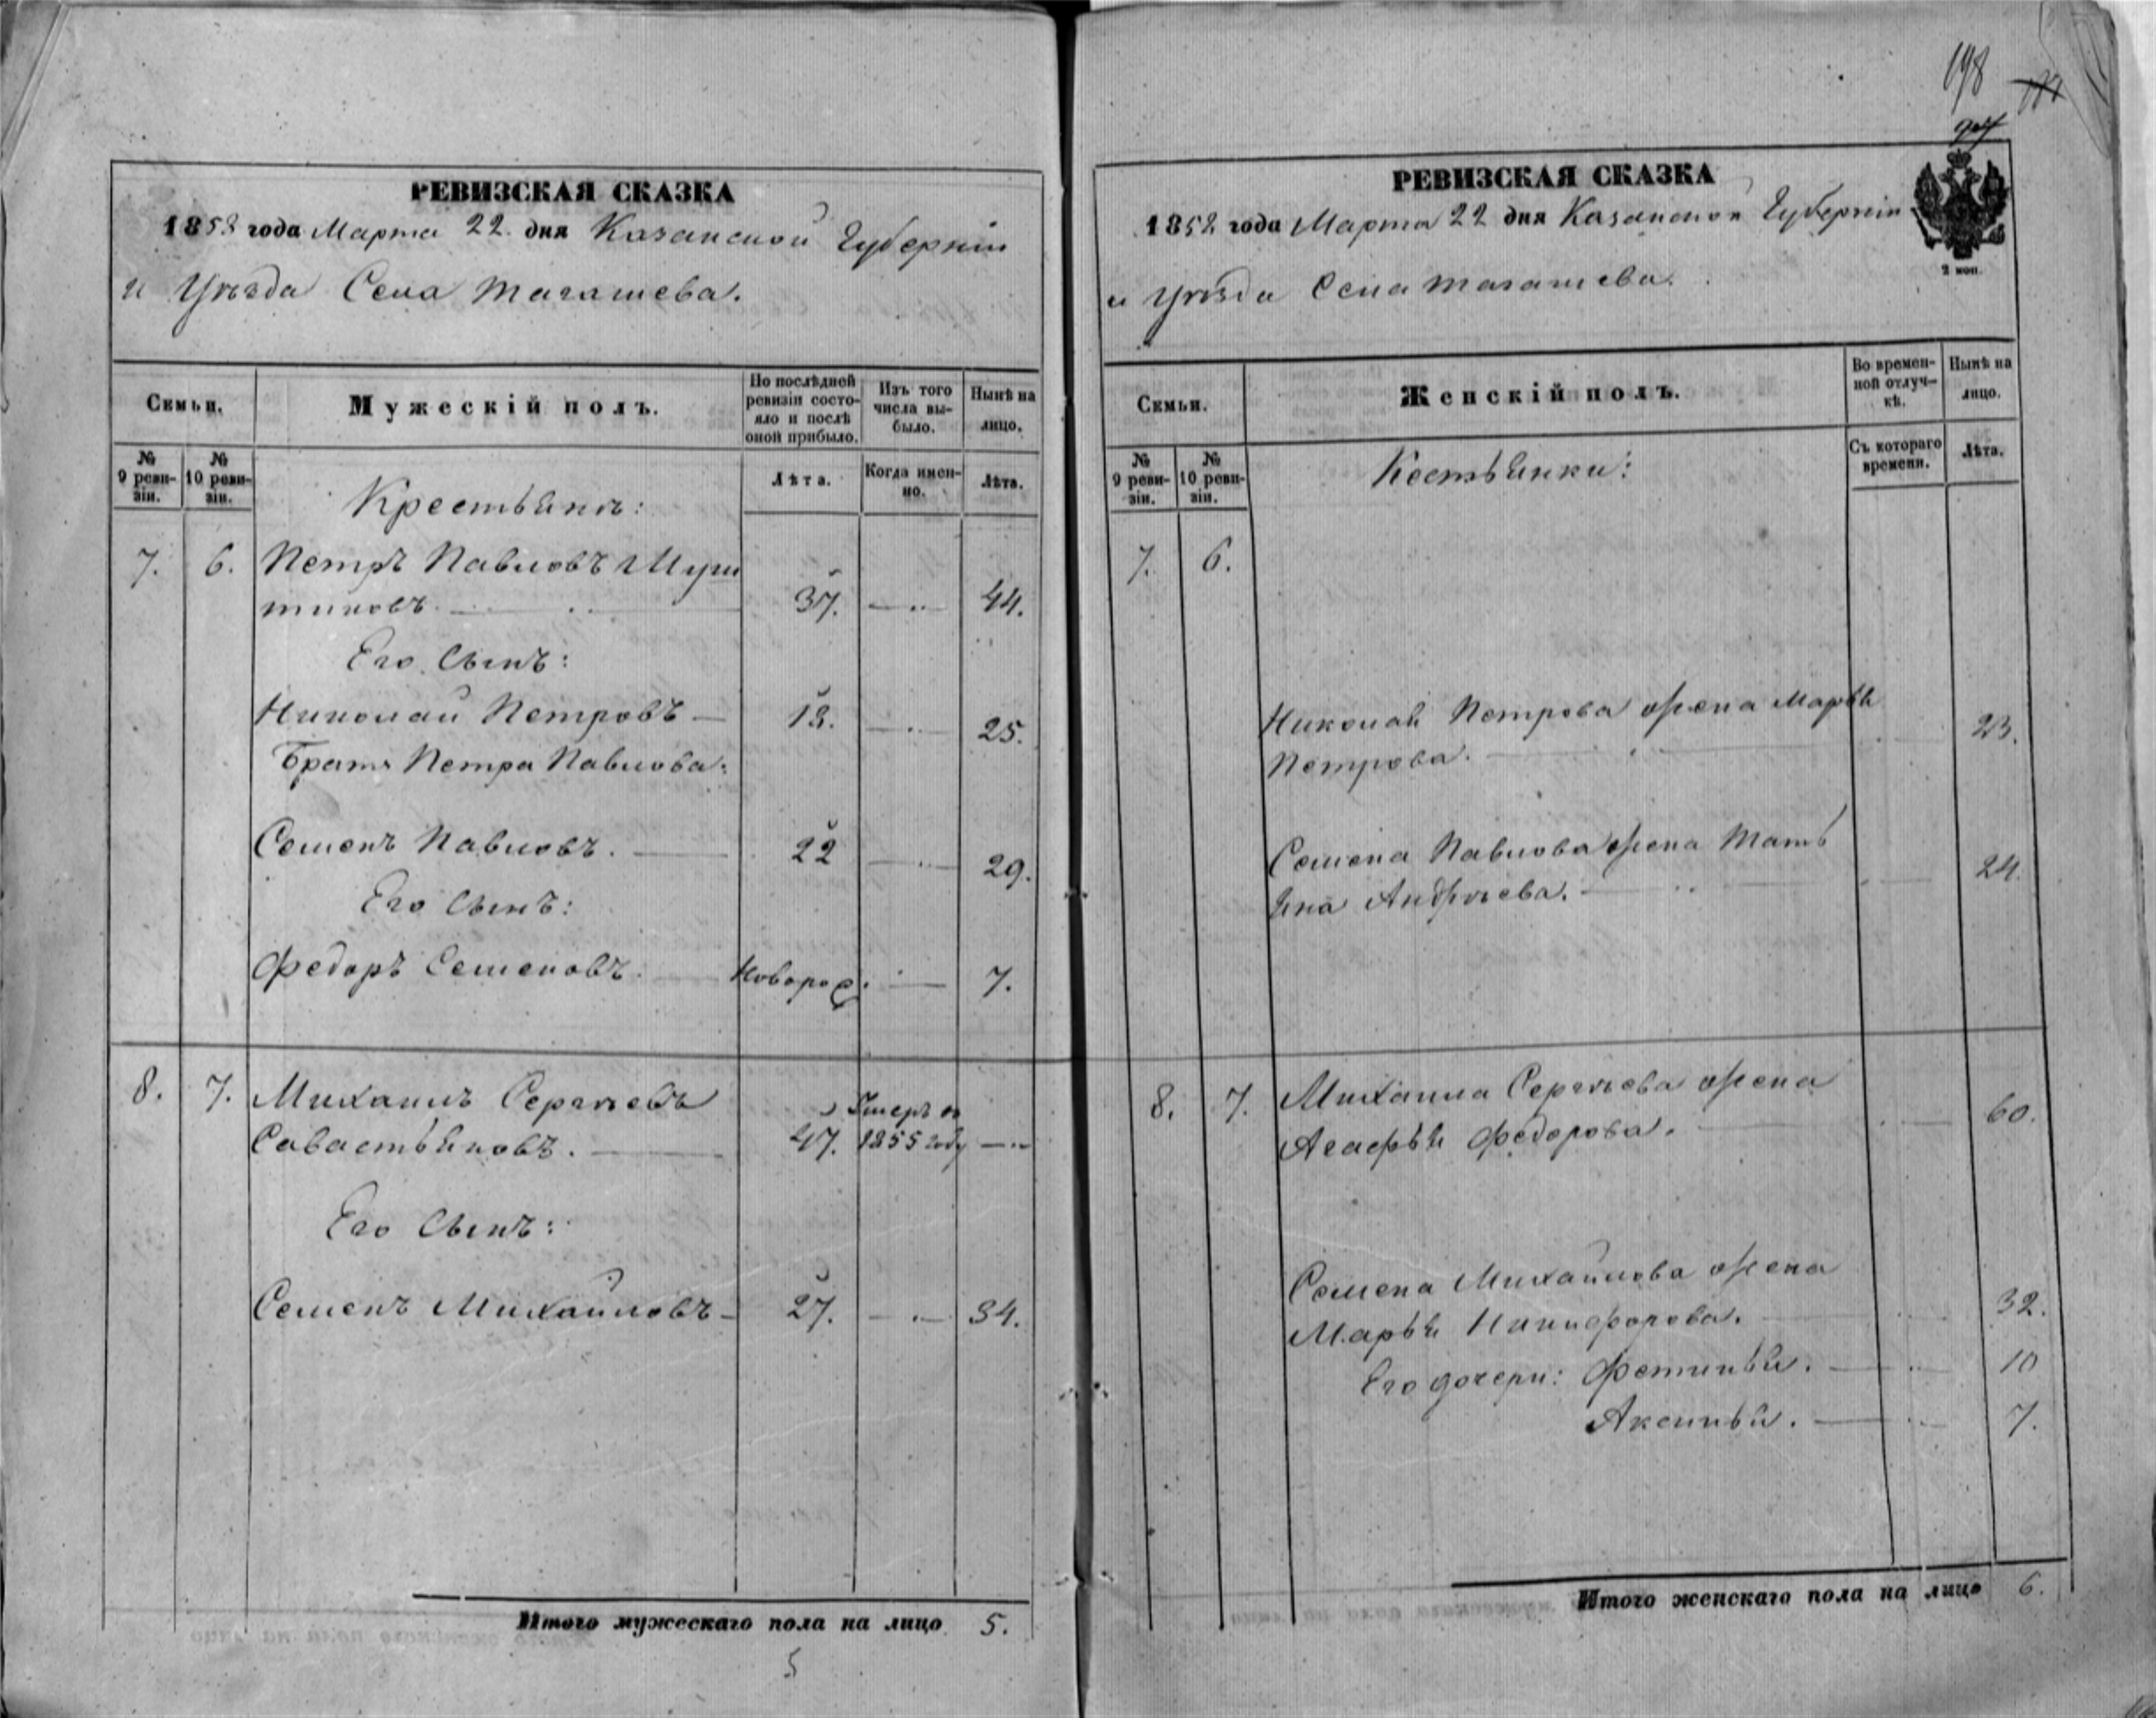 РЕВИЗСКАЯ СКАЗКА
1858 года Марта 22 дня Казанской Губерніи
и Уѣзда Села Тагашева.
Семьи.
Мужескій полъ.
По послѣдней ревизіи состо-
яло и послѣ
оной прибыло.
Изъ того
числа вы-
было.
Нынѣ на
лицо.
№
9 реви-
зіи.
№
10 реви-
зіи.
Лѣта.
Когда имен-
но.
Лѣта.
Крестьянъ:
7. 6. Петръ Павловъ
37. 44.
Его Сынъ:
Николай Петровъ 18. 25.
Братъ Петра Павлова:
Семенъ Павловъ. 22 29.
Его Сынъ:
Федоръ Семеновъ. Новорож. 7.
8. 7. Михаилъ Сергѣевъ Умеръ въ
Савастьяновъ. 47. 1855 году
Его Сынъ:
Семенъ Михайловъ 27. 34.
Итого мужескаго пола на лицо 5.
5
198
РЕВИЗСКАЯ СКАЗКА
1858 года Марта 22 дня Казанской Губерніи
и Уѣзда Села Тагашева.
2 коп.
Семьи.
Женскій полъ.
Во времен-
ной отлуч-
кѣ.
Нынѣ на
лицо.
№
9 реви-
зіи.
№
10 реви-
зіи.
Съ котораго
времени.
Лѣта.
Кестьянки:
7. 6.
Николая Петрова жена Марья
Петрова. 23.
Семена Павлова жена Тать
яна Андрѣева. 24.
8. 7. Михаила Сергѣева жена
Агафья Федорова. 60.
Семена Михайлова жена
Марья Никифорова. 32.
Его дочери: Фетинья. 10
Аксинья. 7.
Итого женскаго пола на лицо 6.